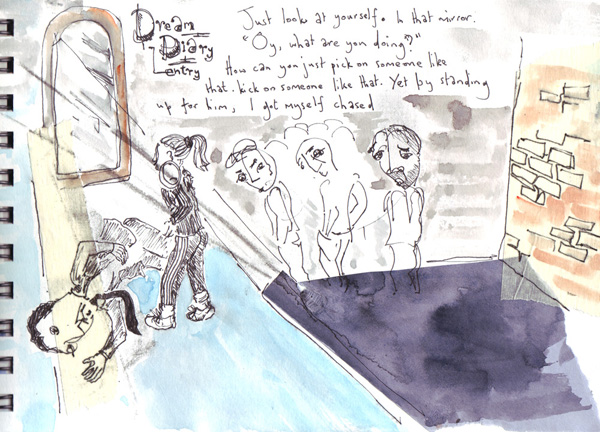 Dream
Diary
Entry
Just look at yourself. In that mirror.
"Oy, what are you doing?"
How can you just pick on someone like
that. kick on someone like that. Yet by standing
up for him, I got myself chased